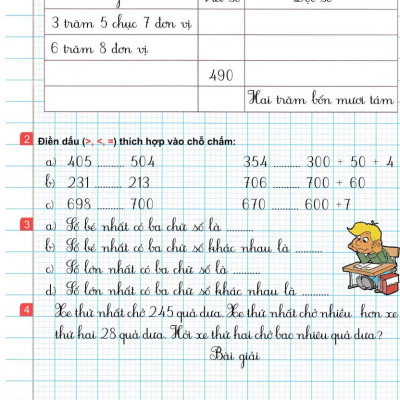 3 trăm 5 chục 7 đơn vị
6 trăm 8 đơn vị
490
Hai trăm bốn mươi tám
2 Điền dấu (>, <, =) thích hợp vào chỗ chấm:
a) 405 .......... 504 354 .......... 300 + 50 + 4
b) 231 .......... 213 706 .......... 700 + 60
c) 698 .......... 700 670 .......... 600 +7
3 a) Số bé nhất có ba chữ số là ..........
b) Số bé nhất có ba chữ số khác nhau là ..........
c) Số lớn nhất có ba chữ số là ..........
d) Số lớn nhất có ba chữ số khác nhau là ..........
4 Xe thứ nhất chở 245 quả dưa. Xe thứ nhất chở nhiều hơn xe
thứ hai 28 quả dưa. Hỏi xe thứ hai chở bao nhiêu quả dưa?
Bài giải